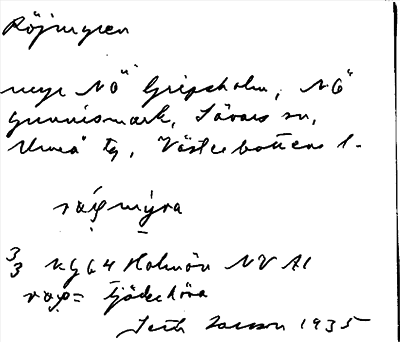 Röjmyren
myr NÖ Gripsholm, NÖ
Gunnismark, Sävars sn,
Umeå tg, Västerbottens l.
røjmýra
3/3 kg 64 Holmön NV A1
= tjäderhöna
1935